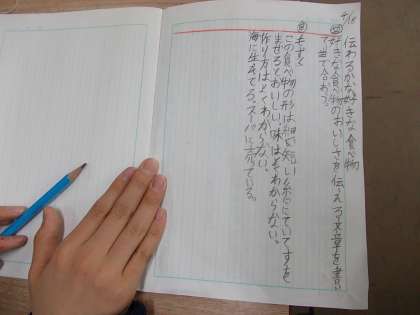 4/18
伝わるかな好きな食べ物
好きな食べ物のおいしさを伝える文章を書い
て当て合おう。
もずく
この食べ物の形は細くて短いしホにていてすを
まぜるとおいしい。味はよくわからない。
作り方はよくわからない。
海に生えてる。スーパーに売ている。